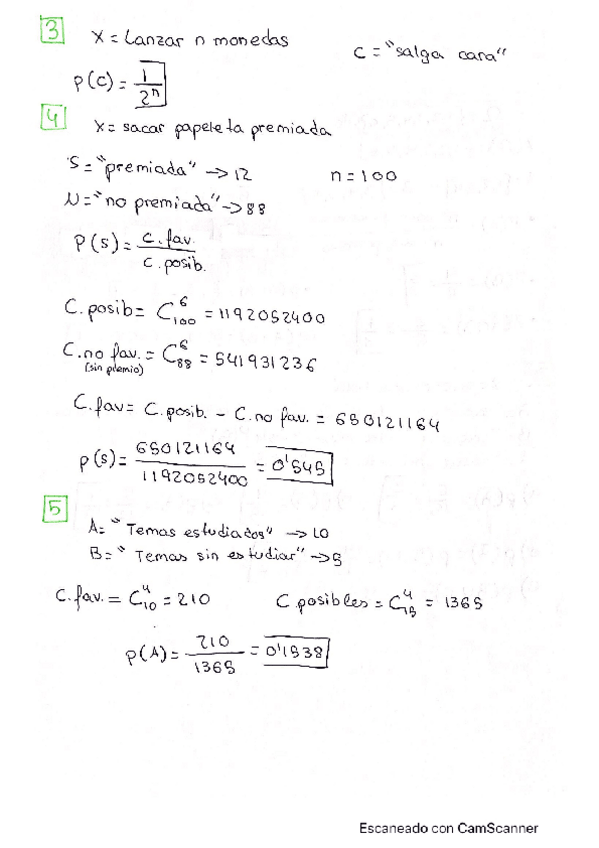 3 X = Lanzar n monedas C = "salga cara"
P(C) = 1/2^n
4 X = sacar papeleta premiada
S = "premiada" -> 12 n = 100
N = "no premiada" -> 88
P(S) = c.fav. / c.posib.
C.posib = C_100^6 = 1192052400
C.no fav. = C_88^6 = 541931236
(sin premio)
C.fav = C.posib. - C.no fav. = 650121164
P(S) = 650121164 / 1192052400 = 0'545
5 A = "Temas estudiados" -> 10
B = "Temas sin estudiar" -> 5
C.fav. = C_10^4 = 210 C.posibles = C_15^4 = 1365
P(A) = 210 / 1365 = 0'1538
Escaneado con CamScanner